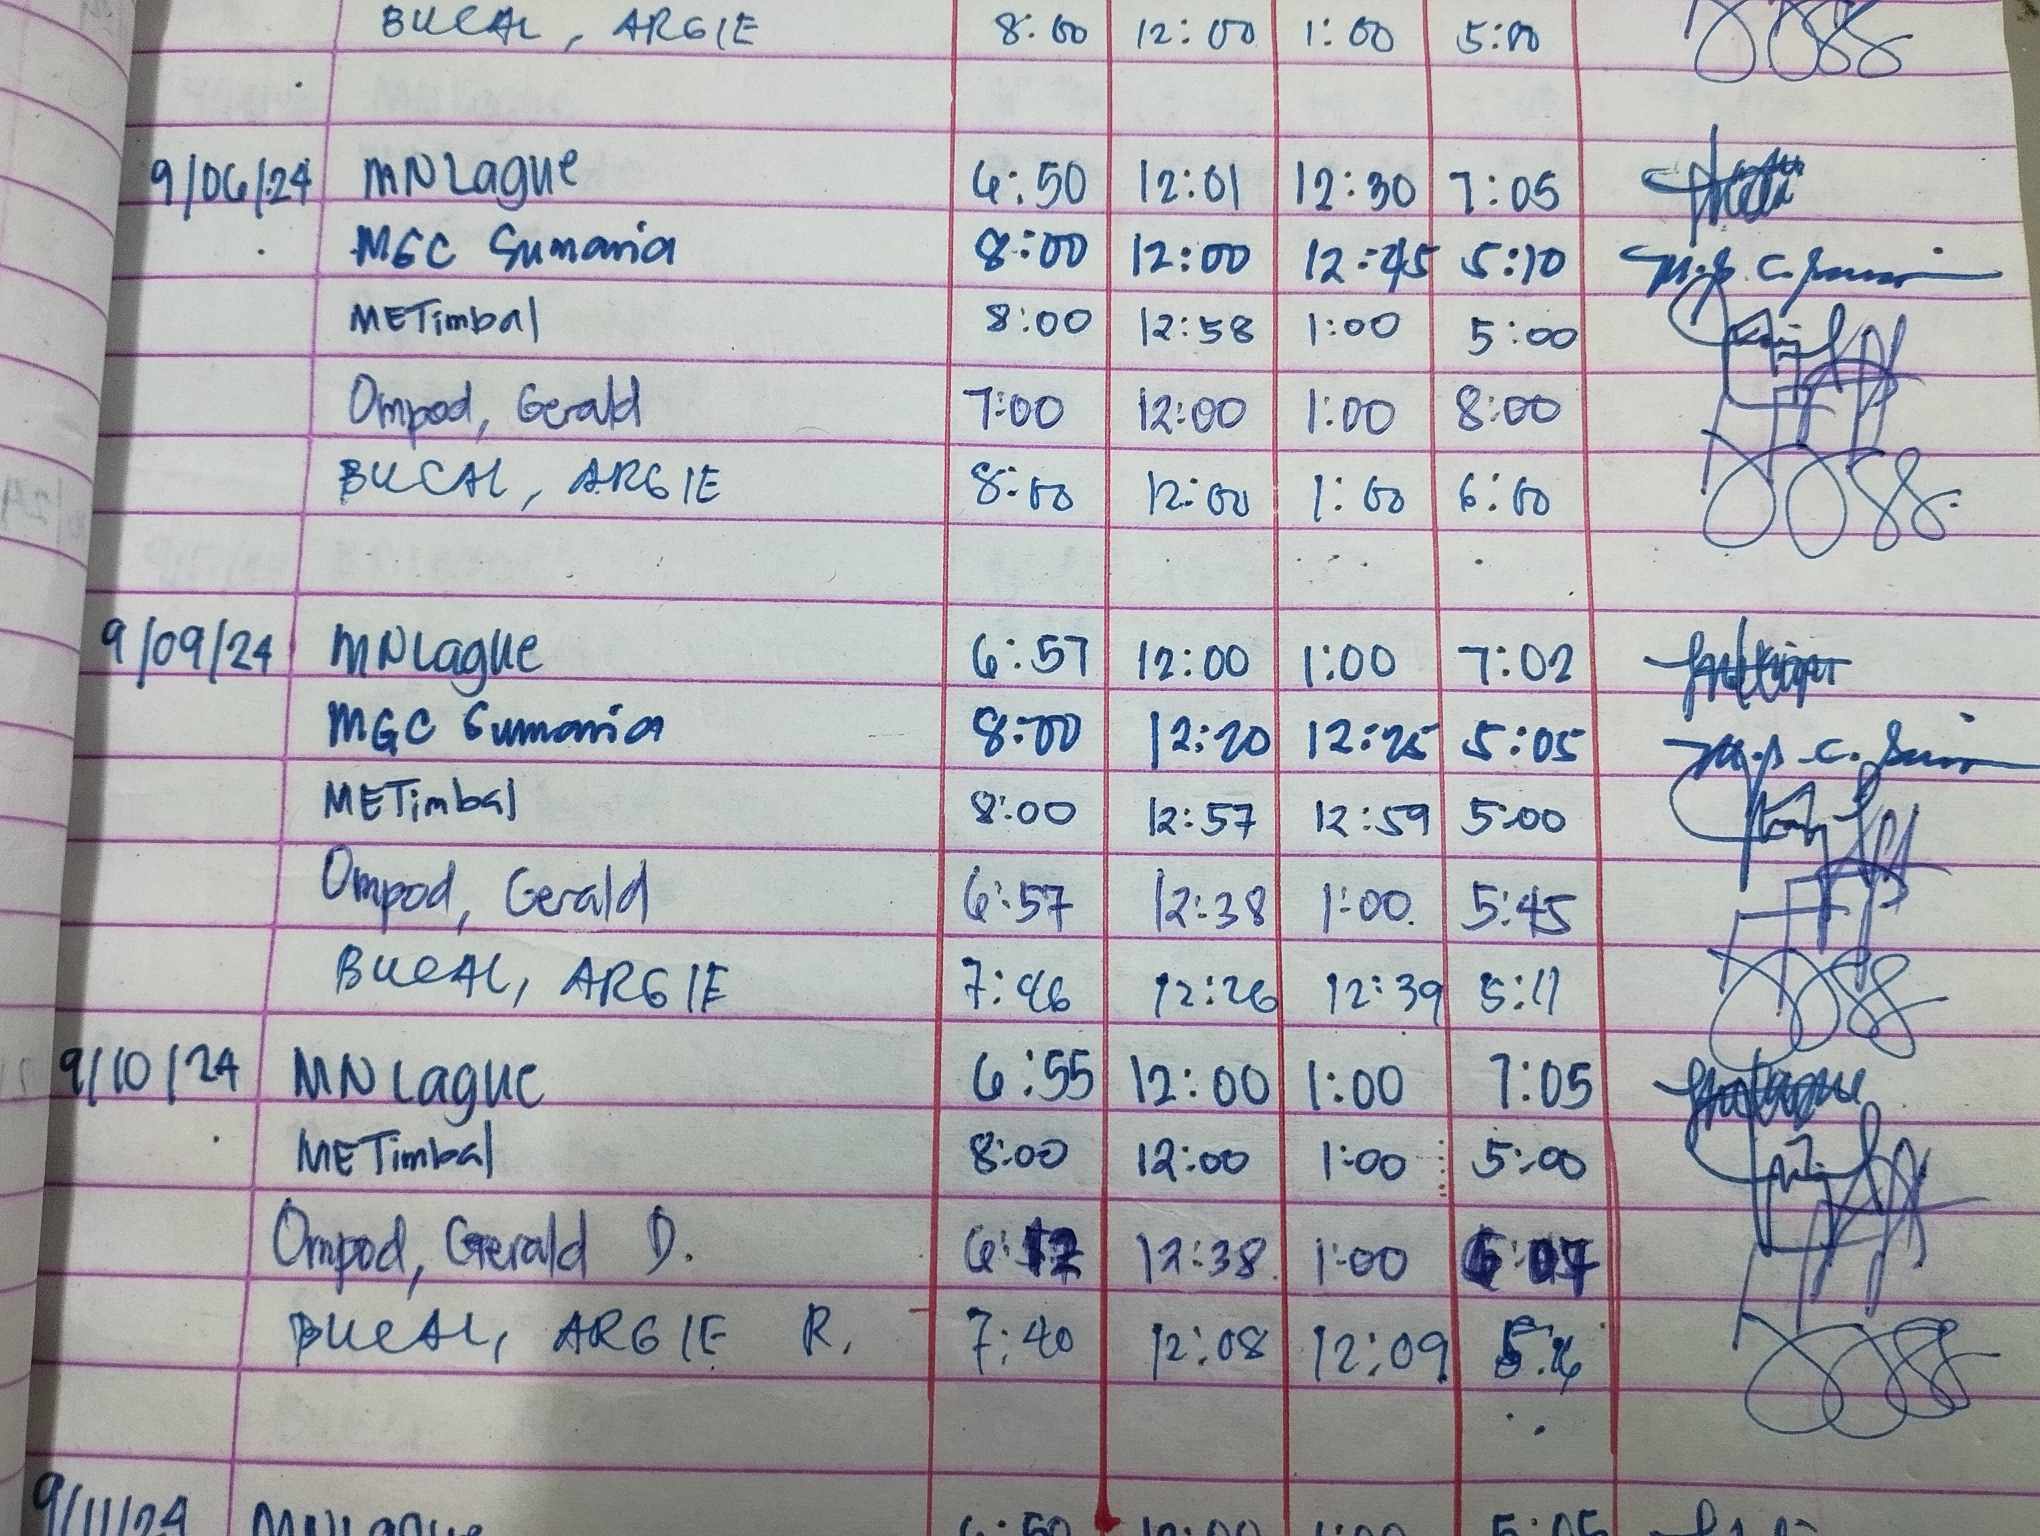 BUCAL, ARGIE 8:00 12:00 1:00 5:00
9/06/24 MNLague 6:50 12:01 12:30 7:05
MGC Sumania 8:00 12:00 12:45 5:10
METimbal 8:00 12:58 1:00 5:00
Ompod, Gerald 7:00 12:00 1:00 8:00
BUCAL, ARGIE 8:00 12:00 1:00 6:00
9/09/24 MNLague 6:57 12:00 1:00 7:02
MGC Sumania 8:00 12:20 12:25 5:05
METimbal 8:00 12:57 12:59 5:00
Ompod, Gerald 6:57 12:38 1:00 5:45
BUCAL, ARGIE 7:46 12:26 12:39 5:11
9/10/24 MNLague 6:55 12:00 1:00 7:05
METimbal 8:00 12:00 1:00 5:00
Ompod, Gerald D. 12:38 1:00
BUCAL, ARGIE R. 7:40 12:08 12:09
9/11/24 MNLague 6:50 12:00 1:00 5:05